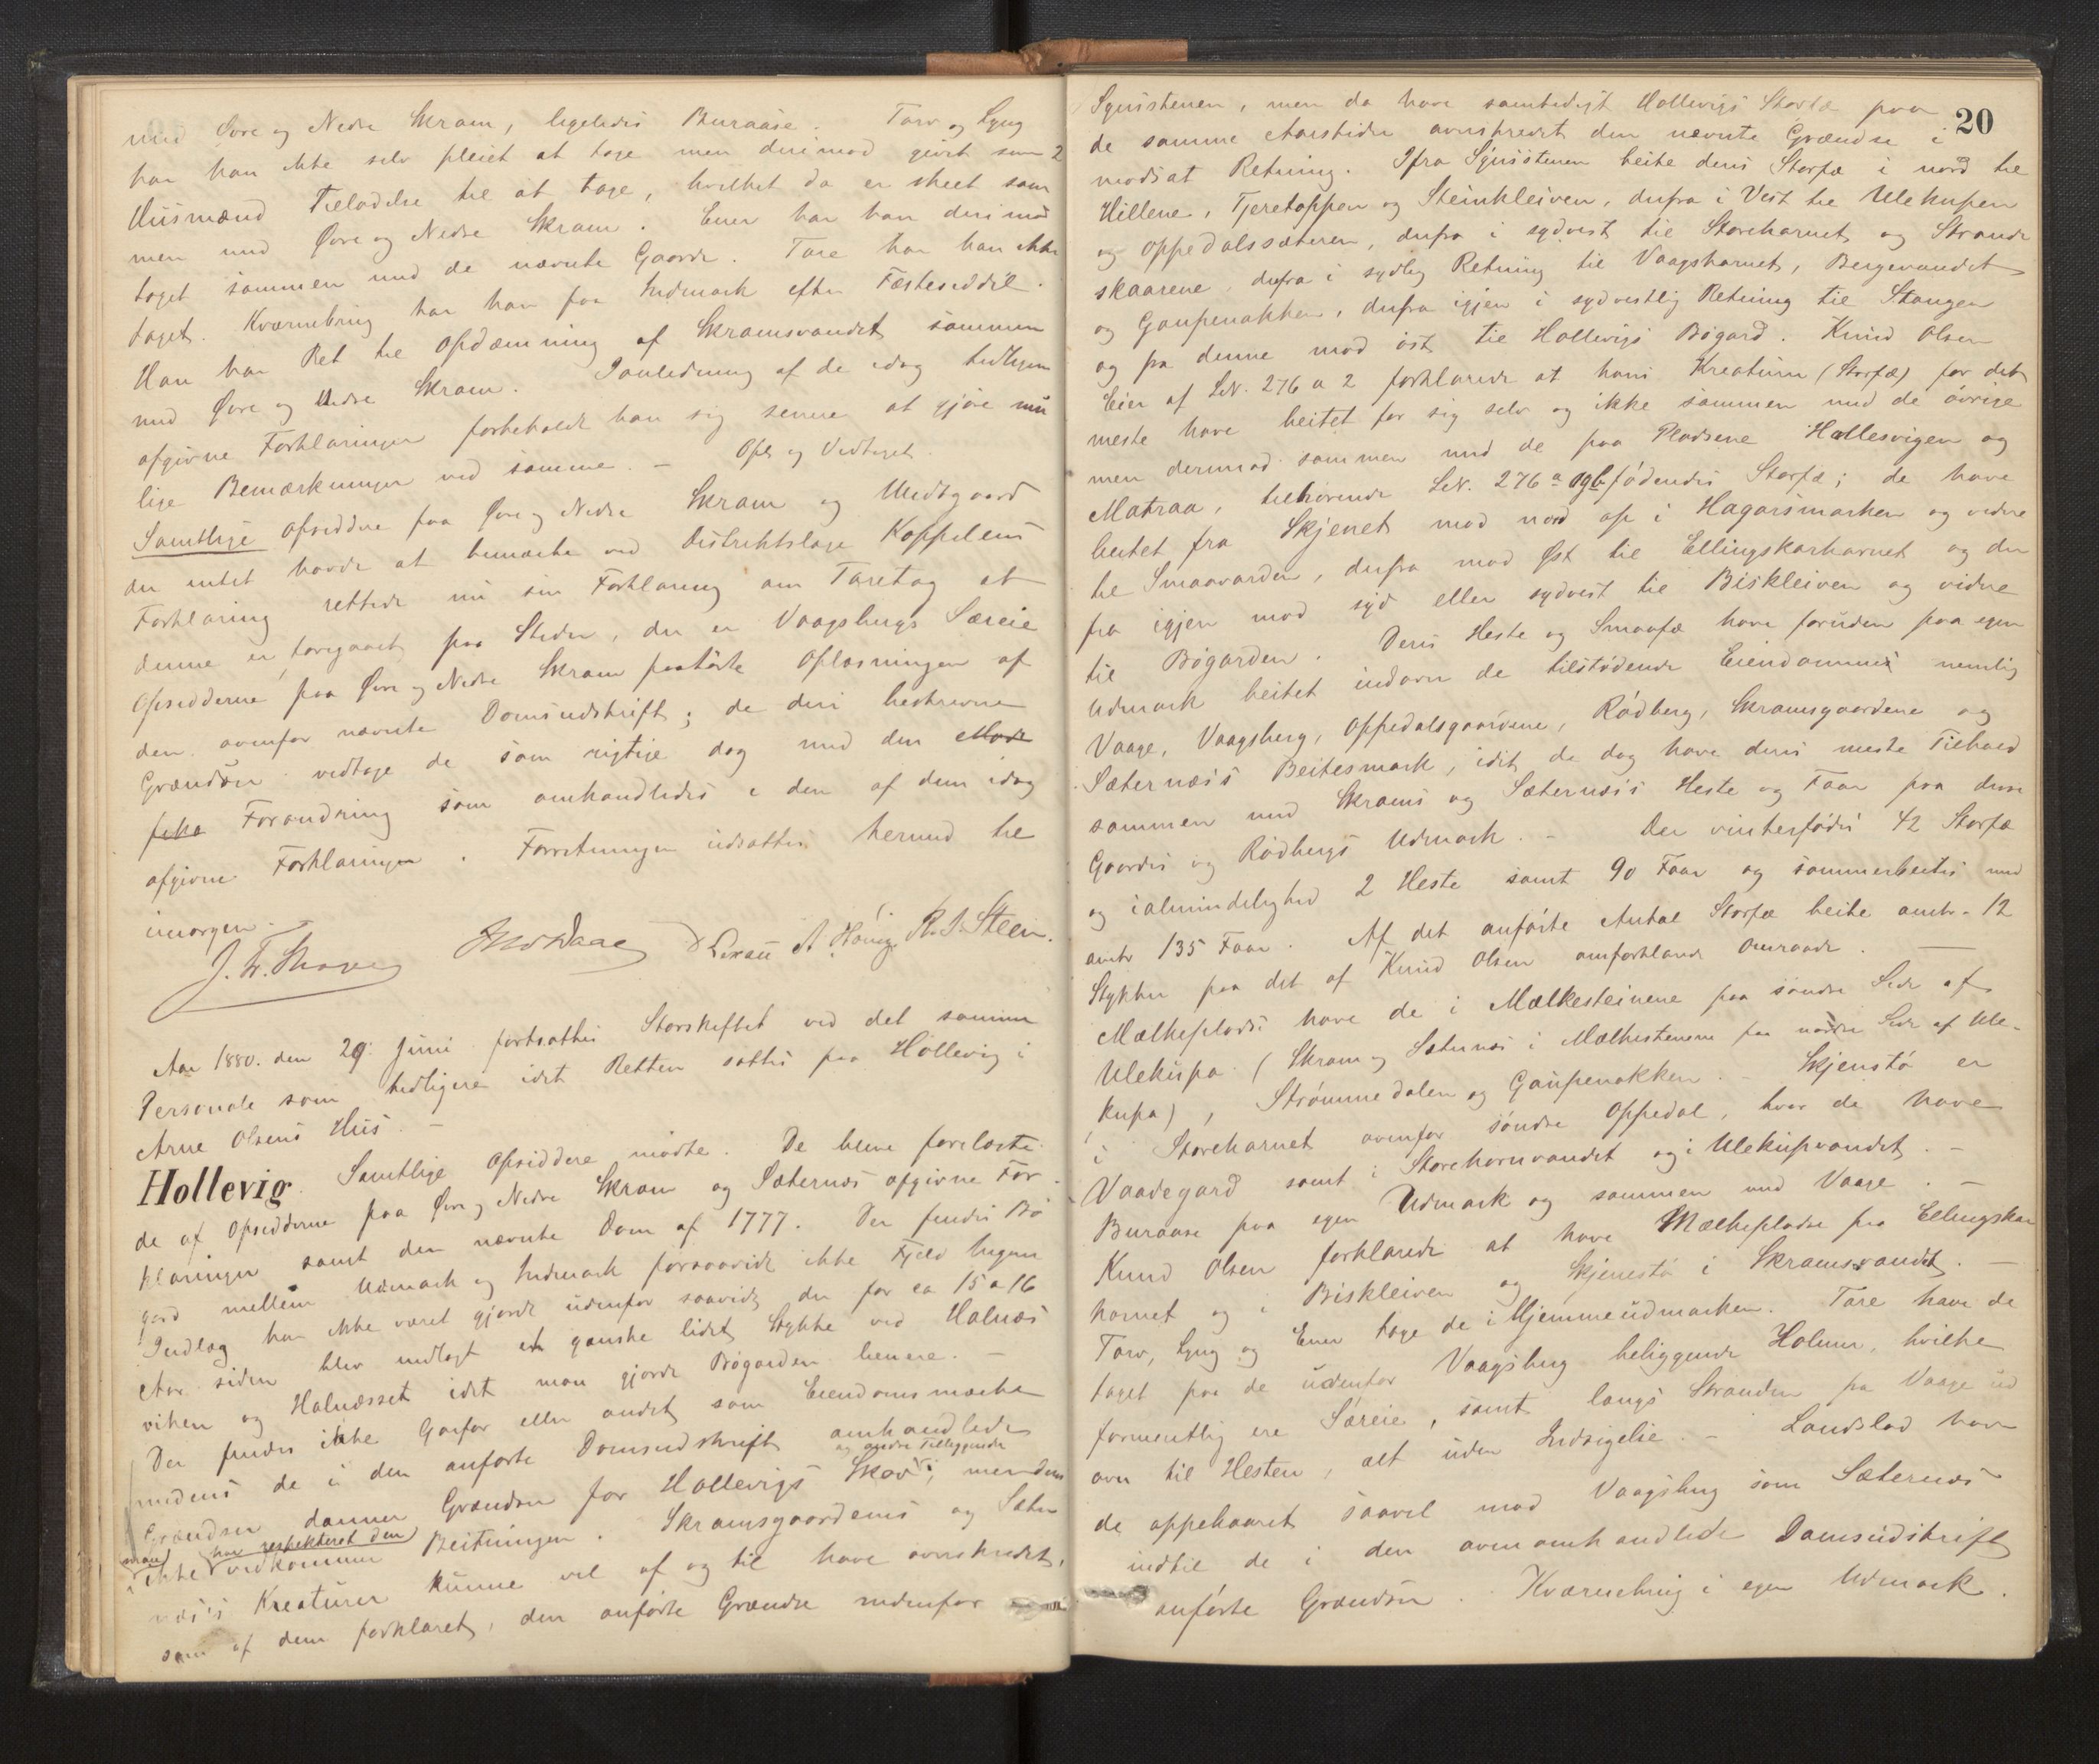 med Øvre og Nedre Skram, ligeledes Buraase. Torv og Lyng
har han ikke selv pleiet at tage men derimod givet sine 2
Husmænd Tilladelse til at tage, hvilket da er skeet sam
men med Øvre og Nedre Skram. Ener har han derimod
taget sammen med de nævnte Gaarde. Tare har han ikke
taget. Kværnebrug har han paa Indmark efter Fæsteseddel.
Han har Ret til Opdæmning af Skramsvandet sammen
med Øvre og Nedre Skram. I anledning af de idag tidligere
afgivne Forklaringer forbeholdt han sig senere at gjøre mu
lige Bemærkninger ved samme. – Opl. og Vedtaget.
Samtlige Opsiddere paa Øvre og Nedre Skram og Medtgaard
der intet havde at bemærke ved Distriktslæge Koppelens
Forklaring rettede nu sin Forklaring om Taretag at
denne er foregaaet paa Steder, der er Vaagsbergs Særeie
Opsidderne paa Øvre og Nedre Skram paahørte Oplæsningen af
den ovenfor nævnte Domsudskrift; de deri beskrevne
Grændser vedtage de som rigtige dog med den
Forandring som omhandledes i den af dem idag
afgivne Forklaringer. Forretningen udsattes hermed til
imorgen.
R. J. Steen.
Aar 1880. den 29. Juni fortsattes Storskiftet ved det samme
Personale som tidligere idet Retten sattes paa Hollevig i
Arne Olsens Hus. –
Hollevig. Samtlige Opsiddere mødte. De bleve forelæste
de af Opsidderne paa Øvre og Nedre Skram og Sæternæs afgivne For
klaringer samt den nævnte Dom af 1777. Der findes Bø
gard mellem Udmark og Indmark forsaavidt ikke Fjeld Ingen
Indlæg har ikke været gjorde udenfor saavidt der for ca 15 a 16
Aar siden blev indlagt et ganske lidet Stykke ved Halnæs
viken og Halnæsset idet man gjorde Bøgarden benere. –
Der findes ikke Garfar eller andet som Eiendomsmærke
medens de i den anførte Domsudskrift omhandlede
og andre Tilliggende
Grændser danner Grændsen for Hollevigs Skov, men
man har respekteret den
ikke vedkommer Beitningen. Skramsgaardenes og Sæter
næs's Kreaturer kunne vel af og til have overskredet,
som af dem forklaret, den anførte Grændse nedenfor
20
Synsstenen, men da have samtidigt Hollevigs Storfæ paa
de samme Aarstider overskredet den nævnte Grændse i
modsat Retning. Ifra Synsstenen beite deres Storfæ i nord til
Hillene, Tjeretoppen og Steinkleiven, derfra i Vest til Ulekupen
og Oppedalssæteren, derfra i sydvest til Storehornet og Strande
skaarene, derfra i sydlig Retning til Vaagshornet, Bergevandet
og Gaupenakken, derfra igjen i sydvestlig Retning til Stangen
og fra denne mod øst til Hollevigs Bøgard. Knud Olsen
Eier af LN. 276 a 2 forklarede at hans Kreaturer (Storfæ) for det
meste have beitet for sig selv og ikke sammen med de øvrige
men derimod sammen med de paa Pladsene Hallesvigen og
Matraa, tilhørende LN. 276 a og b fødendes Storfæ; de have
beitet fra Skjenet mod nord op i Hagarsmarken og videre
til Smaavarden, derfra mod Øst til Ellingskarhornet og der
fra igjen mod syd eller sydvest til Biskleiven og videre
til Bøgarden. Deres Heste og Smaafæ have foruden paa egen
Udmark beitet indover de tilstødende Eiendomme nemlig
Vaage, Vaagsberg, Oppedalsgaardene, Rødberg, Skramsgaardene og
Sæternæs's Beitesmark, idet de dog have deres meste Tilhold
sammen med Skrams og Sæternæs's Heste og Faar paa disse
Gaardes og Rødbergs Udmark. – Der vinterfødes 42 Storfæ
og ialmindelighed 2 Heste samt 90 Faar og sommerbeites med
omtr 135 Faar. Af det anførte Antal Storfæ beite omtr. 12
Stykker paa det af Knud Olsen omforklarede Omraade. —
Mælkeplads have de i Mælkesteinene paa søndre Side af
Ulekupa (Skram og Sæternæs i Mælkestenene paa nordre Side af Ule-
kupa), Strømmedalen og Gaupenakken. – Skjenstø er
i Storehornet ovenfor søndre Oppedal, hvor de have
Vaadegard samt i Storehornvandet og i Ulekupvandet. –
Buraase paa egen Udmark og sammen med Vaage. –
Knud Olsen forklarede at have Mælkeplads paa Ellingskar
hornet og i Biskleiven og Skjenestø i Skramsvandet. –
Torv, Lyng og Ener tage de i Hjemmeudmarken. Tare have de
taget paa de udenfor Vaagsberg beliggende Holmer, hvilke
formentlig ere Særeie, samt langs Stranden fra Vaage ud
over til Hesten, alt uden Indsigelse. – Landslod have
de oppebaaret saavel mod Vaagsberg som Sæternæs
indtil de i den ovenomhandlede Domsudskrift
anførte Grændser. Kværnebrug i egen Udmark.